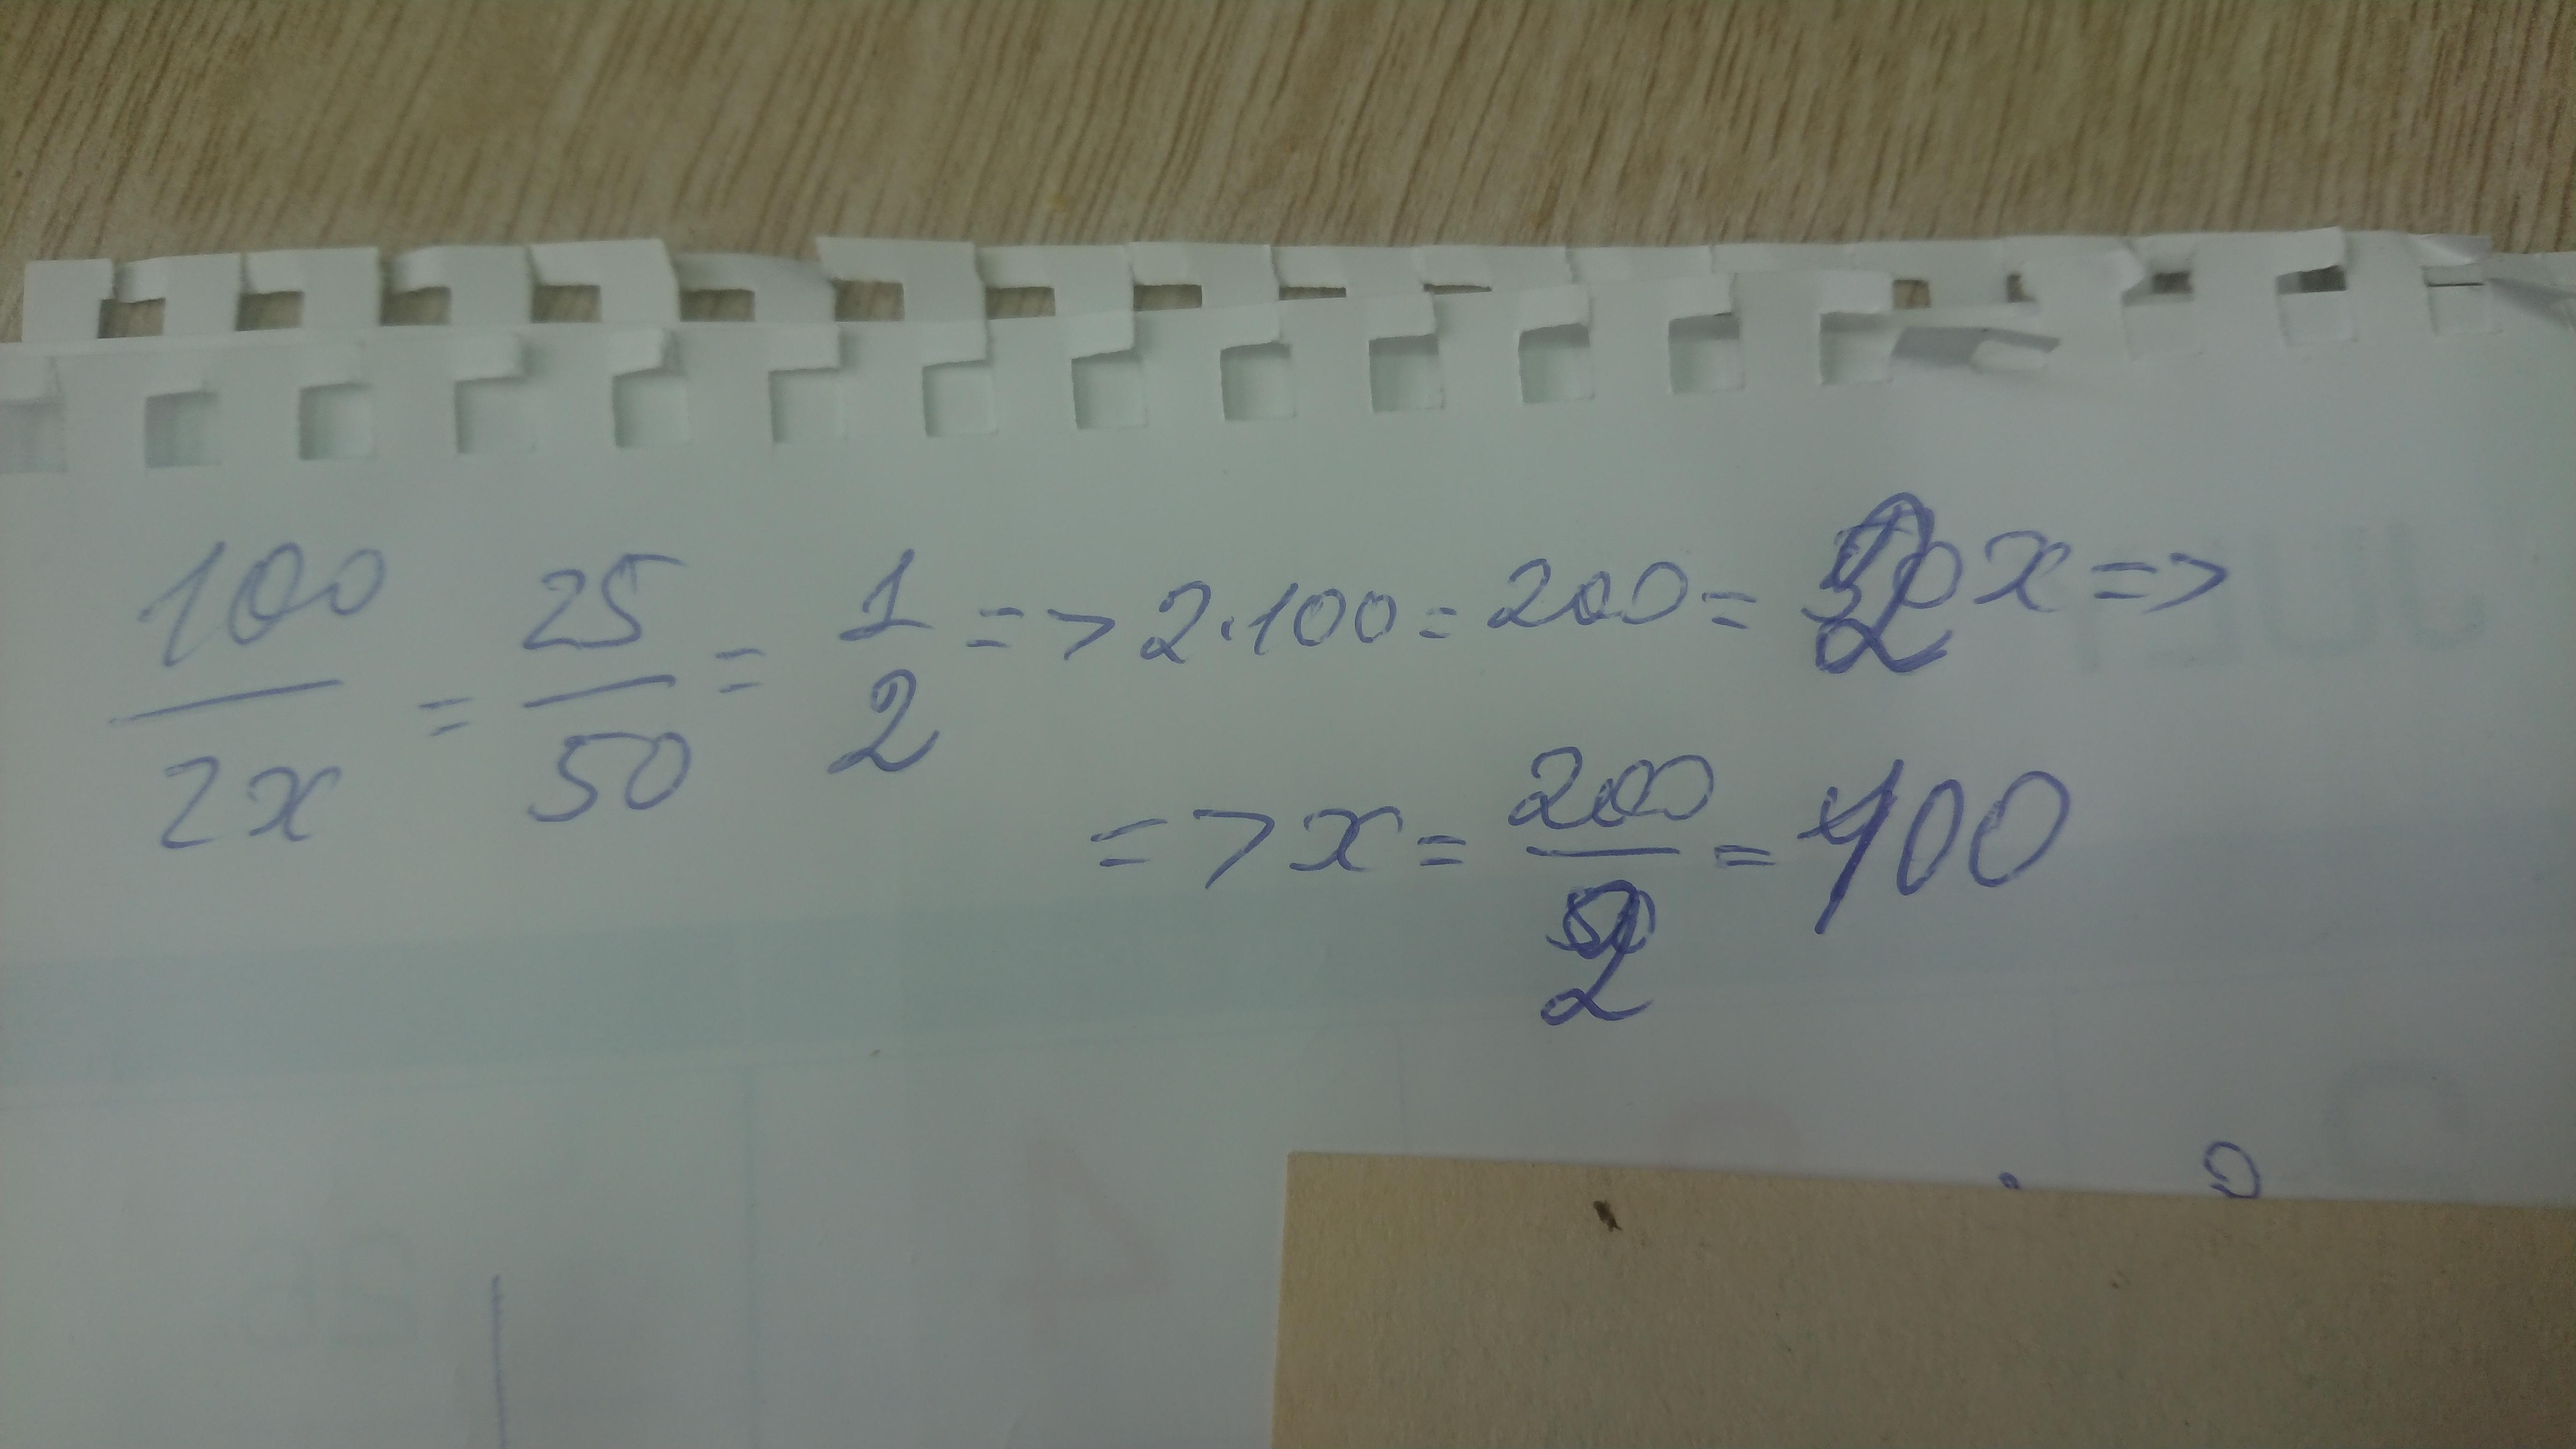 100/2x = 25/50 = 1/2 => 2·100 = 200 = 2x =>
=> x = 200/2 = 100